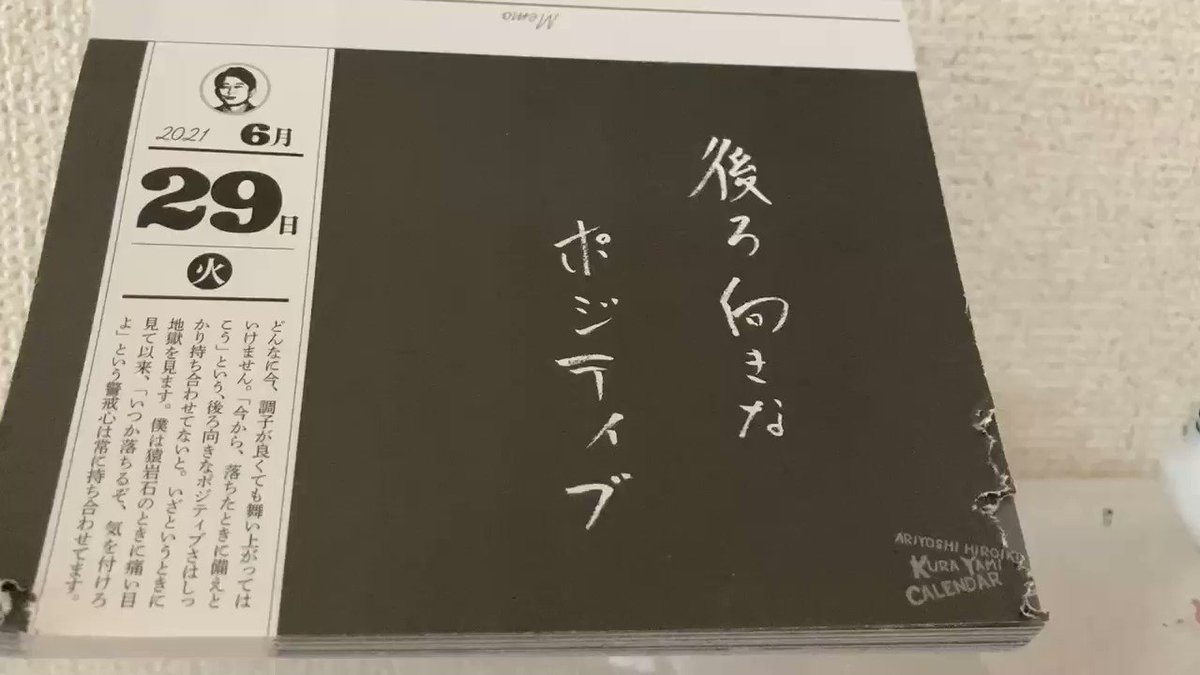 Memo
2021 6月
29日
火
後ろ向きな
ポジティブ
どんなに今、調子が良くても舞い上がっては
いけません。「今から、落ちたときに備えと
こう」という、後ろ向きなポジティブさはしっ
かり持ち合わせてないと。いざというときに
地獄を見ます。僕は猿岩石のときに痛い目
見て以来、「いつか落ちるぞ、気を付けろ
よ」という警戒心は常に持ち合わせてます。
ARIYOSHI HIROIKI
KURA YAMI
CALENDAR